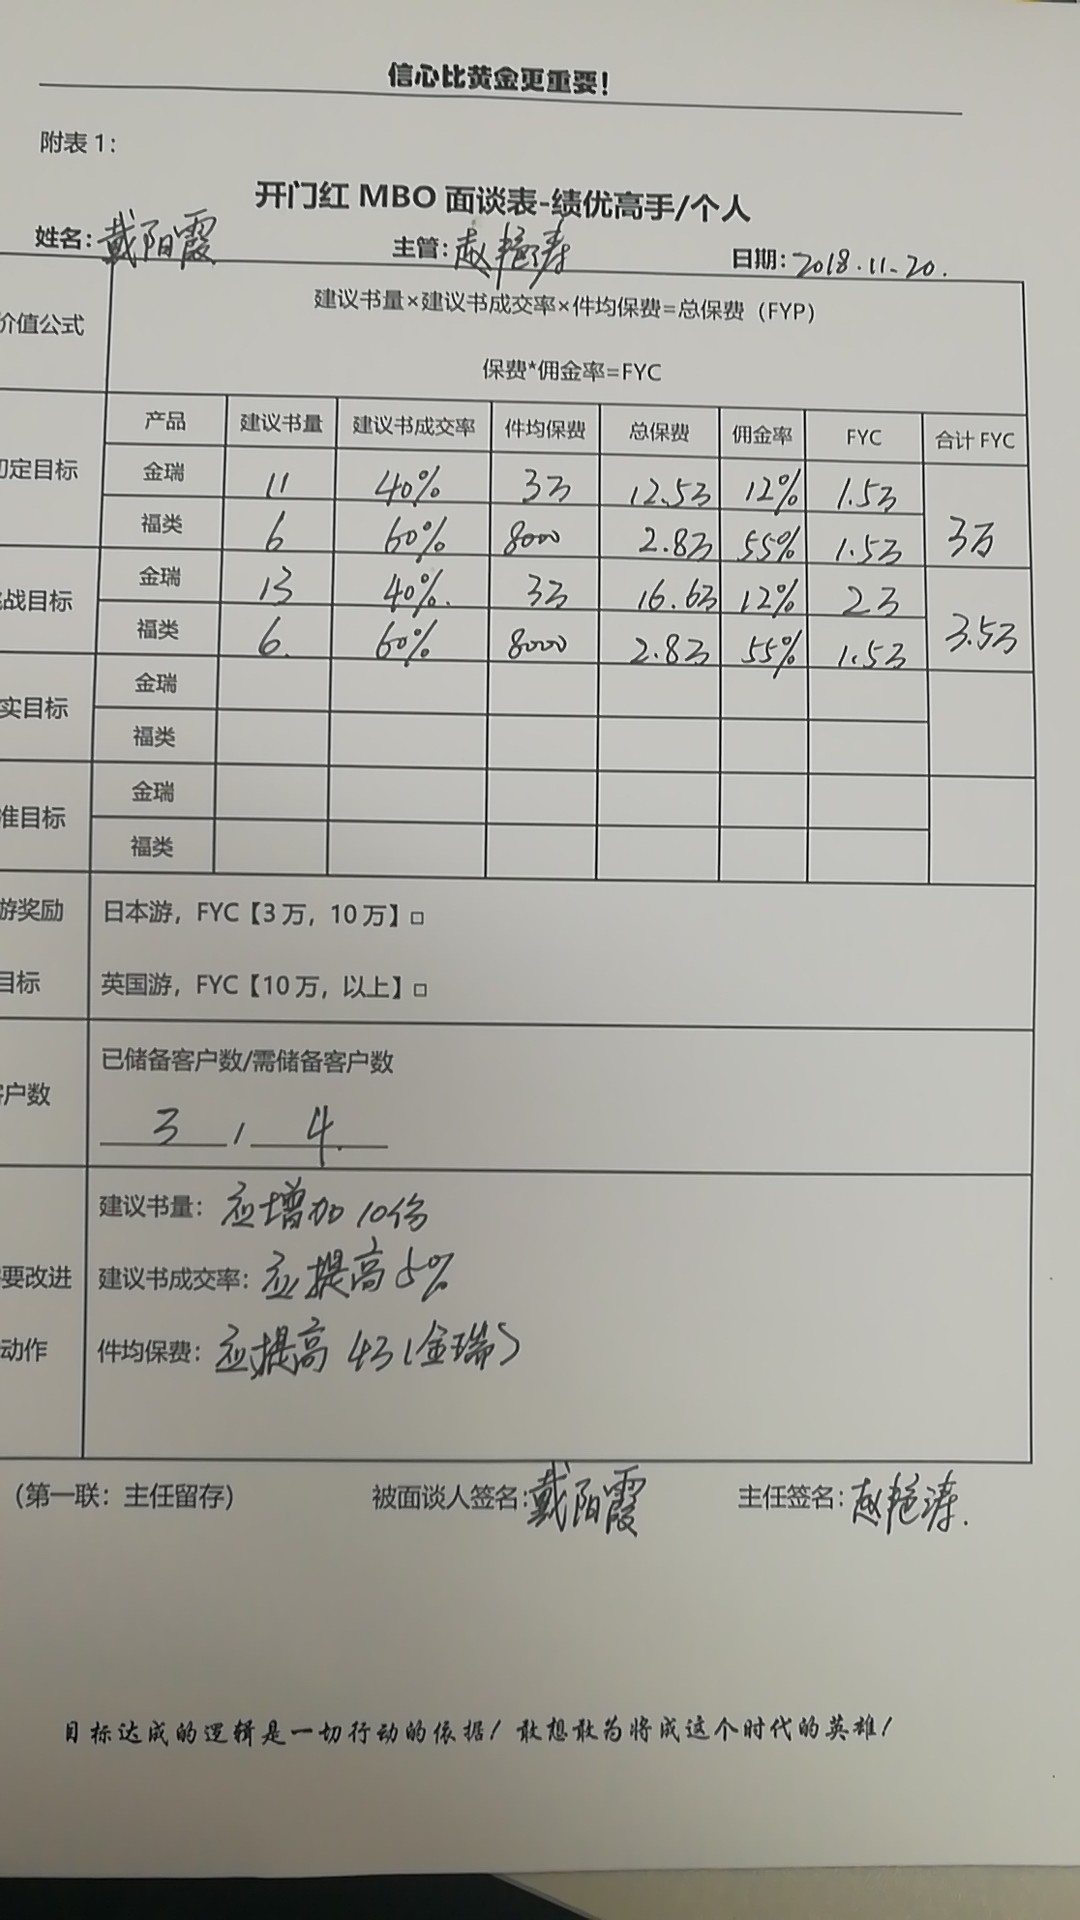 信心比黄金更重要！
附表1：
开门红 MBO 面谈表-绩优高手/个人
姓名：戴阳霞 主管：赵艳涛 日期：2018.11.20.
价值公式
建议书量×建议书成交率×件均保费=总保费（FYP）
保费*佣金率=FYC
产品 建议书量 建议书成交率 件均保费 总保费 佣金率 FYC 合计 FYC
初定目标
金瑞 11 40% 3万 12.5万 12% 1.5万
福类 6 60% 8000 2.8万 55% 1.5万 3万
挑战目标
金瑞 13 40%. 3万 16.6万 12% 2万
福类 6. 60% 8000 2.8万 55% 1.5万 3.5万
实目标
金瑞
福类
准目标
金瑞
福类
游奖励
日本游，FYC【3万，10万】□
目标
英国游，FYC【10万，以上】□
已储备客户数/需储备客户数
客户数
3 / 4.
建议书量：应增加10份
要改进
建议书成交率：应提高5%
动作
件均保费：应提高4万（金瑞）
（第一联：主任留存） 被面谈人签名：戴阳霞 主任签名：赵艳涛.
目标达成的逻辑是一切行动的依据！敢想敢为将成这个时代的英雄！